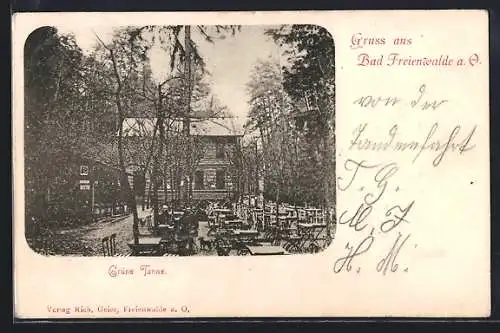 Gruss aus
Bad Freienwalde a. O.
von der
Tandenfahrt
T. G.
M. J.
H. M.
Grüne Tanne.
Verlag Rich. Geiss, Freienwalde a. O.